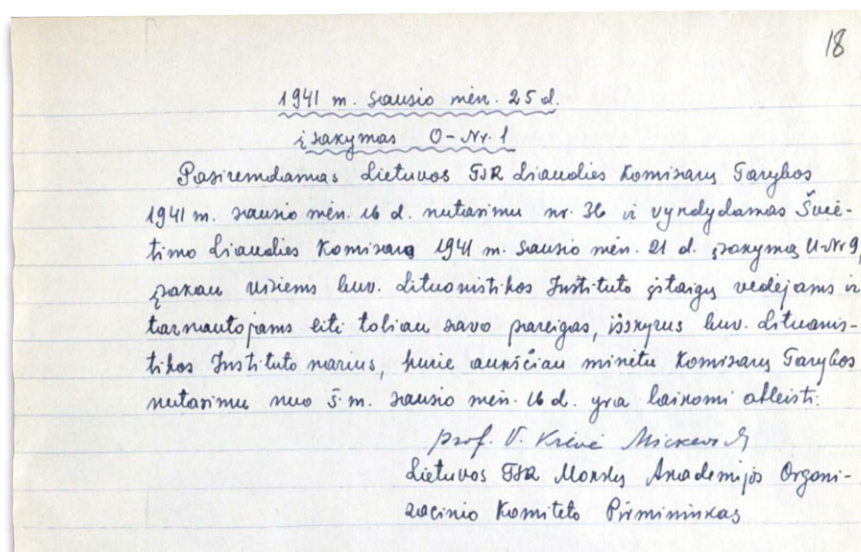 18
1941 m. sausio mėn. 25 d.
įsakymas O-Nr. 1
Pasiremdamas Lietuvos TSR Liaudies Komisarų Tarybos
1941 m. sausio mėn. 16 d. nutarimu nr. 36 ir vykdydamas Švie-
timo Liaudies Komisaro 1941 m. sausio mėn. 21 d. įsakymą U-Nr 9,
įsakau visiems buv. Lituanistikos Instituto įstaigų vedėjams ir
tarnautojams eiti toliau savo pareigas, išskyrus buv. Lituanis-
tikos Instituto narius, kurie aukščiau minėtu Komisarų Tarybos
nutarimu nuo š. m. sausio mėn. 16 d. yra laikomi atleisti.
prof. V. Krėvė Mickevič
Lietuvos TSR Mokslų Akademijos Organi-
zacinio Komiteto Pirmininkas